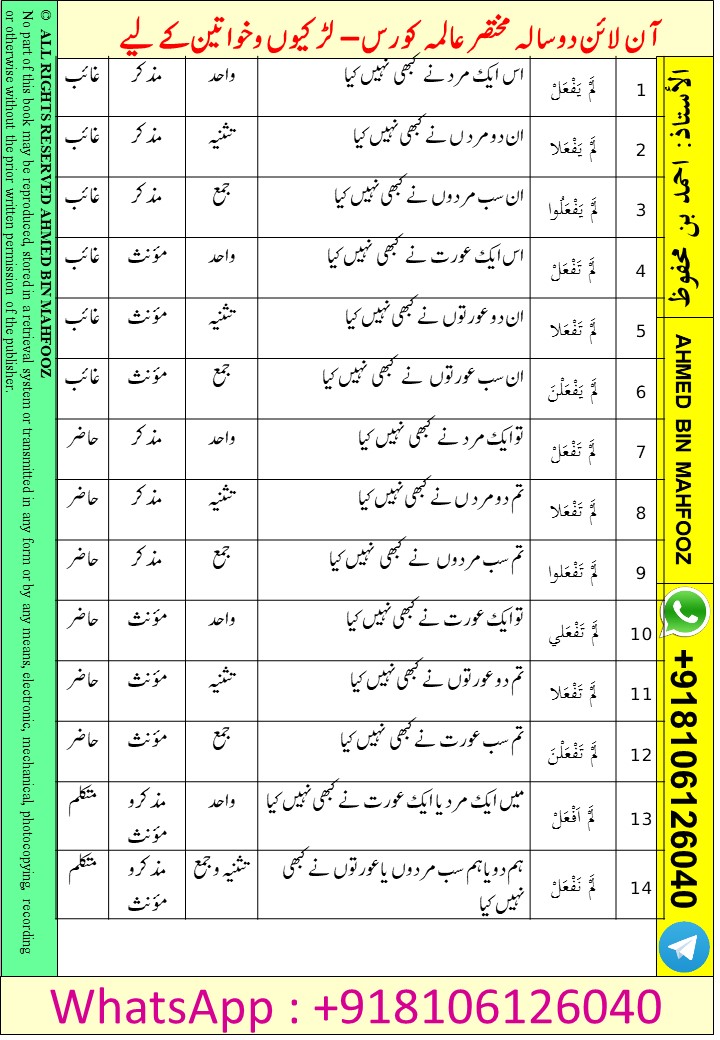 آن لائن دو سالہ مختصر عالمہ کورس – لڑکیوں و خواتین کے لیے
1 لَمْ يَفْعَلْ اس ایک مرد نے کبھی نہیں کیا واحد مذکر غائب
2 لَمْ يَفْعَلا ان دو مردں نے کبھی نہیں کیا تثنیہ مذکر غائب
3 لَمْ يَفْعَلُوا ان سب مردوں نے کبھی نہیں کیا جمع مذکر غائب
4 لَمْ تَفْعَلْ اس ایک عورت نے کبھی نہیں کیا واحد مؤنث غائب
5 لَمْ تَفْعَلا ان دو عورتوں نے کبھی نہیں کیا تثنیہ مؤنث غائب
6 لَمْ يَفْعَلْنَ ان سب عورتوں نے کبھی نہیں کیا جمع مؤنث غائب
7 لَمْ تَفْعَلْ تو ایک مرد نے کبھی نہیں کیا واحد مذکر حاضر
8 لَمْ تَفْعَلا تم دو مردں نے کبھی نہیں کیا تثنیہ مذکر حاضر
9 لَمْ تَفْعَلوا تم سب مردوں نے کبھی نہیں کیا جمع مذکر حاضر
10 لَمْ تَفْعَلي تو ایک عورت نے کبھی نہیں کیا واحد مؤنث حاضر
11 لَمْ تَفْعَلا تم دو عورتوں نے کبھی نہیں کیا تثنیہ مؤنث حاضر
12 لَمْ تَفْعَلْنَ تم سب عورت نے کبھی نہیں کیا جمع مؤنث حاضر
13 لَمْ اَفْعَلْ میں ایک مرد یا ایک عورت نے کبھی نہیں کیا واحد مذکر و متکلم
مؤنث
14 لَمْ نَفْعَلْ ہم دو یا ہم سب مردوں یا عورتوں نے کبھی تثنیہ و جمع مذکر و متکلم
نہیں کیا مؤنث
الأستاذ: احمد بن محفوظ
AHMED BIN MAHFOOZ
+918106126040
© ALL RIGHTS RESERVED AHMED BIN MAHFOOZ
No part of this book may be reproduced, stored in a retrieval system or transmitted in any form or by any means, electronic, mechanical, photocopying, recording
or otherwise without the prior written permission of the publisher.
WhatsApp : +918106126040